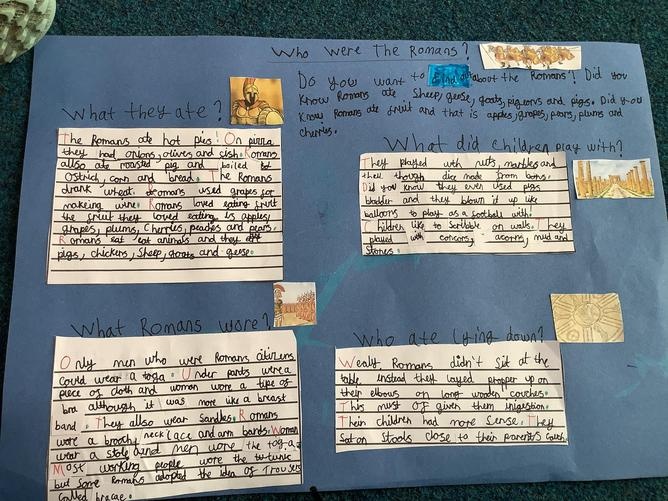 Who Were The Romans?
Do you want to find out about the Romans? Did you
know Romans ate Sheep, geese, goats, pigeons and pigs. Did you
know Romans ate fruit and that is apples, grapes, pears, plums and
cherries.
What they ate?
The Romans ate hot pies! On pizza
they had onions, olives and fish. Romans
allso ate roasted pig and boiled
Ostrich, corn and bread. The Romans
drank wheat. Romans used grapes for
makeing wine. Romans loved eating fruit
the fruit they loved eating is apples,
grapes, plums, Cherries, peaches and pears.
Romans eat eat animals and they
pigs, chickens, Sheep, goats and geese.
What did children play with?
They played with nuts, marbles and
they though dice made from bons.
Did you know they even used pigs
bladder and they blown it up like
balloons to play as a football with.
Children like to Scribble on walls. They
played with concors, acorns, mud and
Stones.
What Romans wore?
Only men who were Romans citizens
Could wear a toga. Under pants were a
piece of cloth and woman wore a tipe of
bra although it was more like a breast
band. They also wear Sandles. Romans
wore a broochy neck lace and arm bands. Woman
wear a stole and men wore the toga.
Most working people wore the tutunic
but some Romans adopted the idea of Trousers
Called bracae.
Who ate lying down?
Wealy Romans didn't Sit at the
table, instead they layed propper up on
their elbows on long wooden couches.
This must of given them inigestion.
Their children had more Sense. They
Sat on Stools close to their parents Couch.